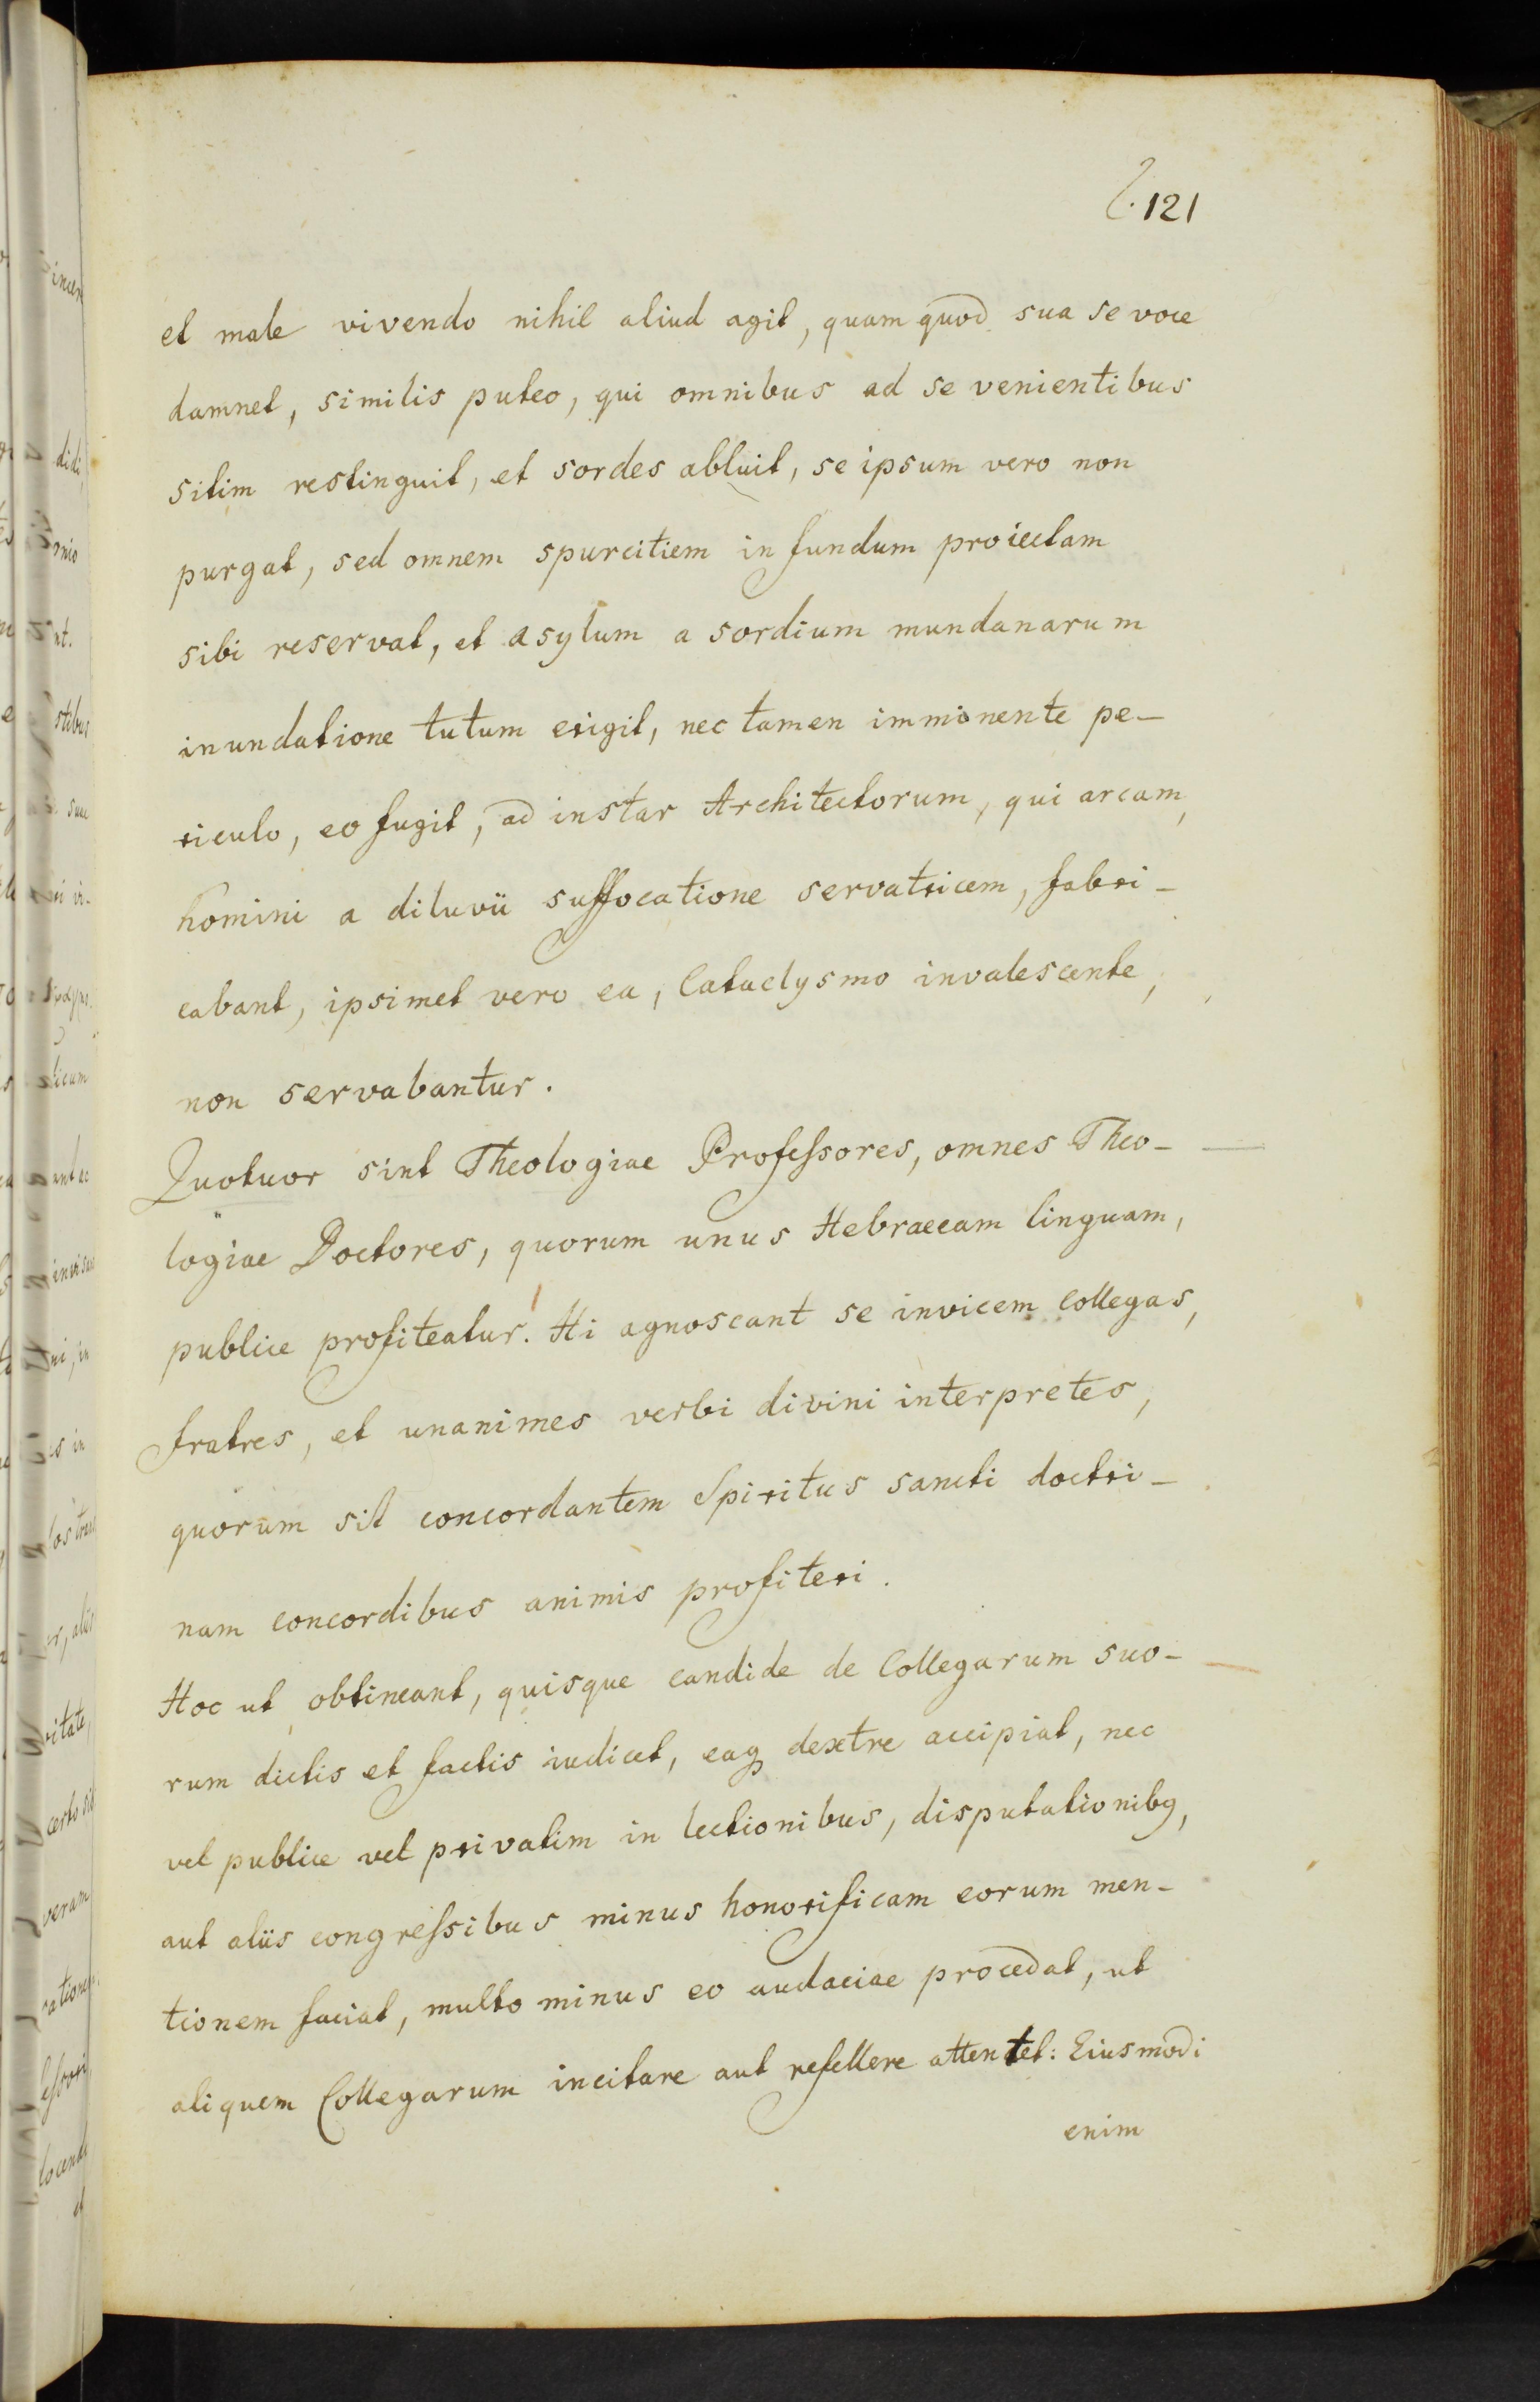 121
et male vivendo nihil aliud agit, quam quod sua se voce
damnet, similis puteo, qui omnibus ad se venientibus
sitim restinguit, et sordes abluit, se ipsum vero non
purgat, sed omnem spurcitiem in fundum proiectam
sibi reservat, et asylum a sordium mundanarum
inundatione tutum erigit, nec tamen imminente pe-
riculo, eo fugit, ad instar Architectorum, qui arcam,
homini a diluvii suffocatione servatricem, fabri-
cabant, ipsimet vero ea, Cataclysmo invalescente,
non servabantur.
Quotuor sint Theologiae Professores, omnes Theo-
logiae Doctores, quorum unus Hebraeam linguam,
publice profiteatur. Hi agnoscant se invicem Collegas,
fratres, et unanimes verbi divini interpretes,
quorum sit concordantem Spiritus sancti doctri-
nam concordibus animis profiteri.
Hoc ut obtineant, quisque candide de Collegarum suo-
rum dictis et factis iudicet, eaq dextre accipiat, nec
vel publice vel privatim in lectionibus, disputationibq,
aut aliis congressibus minus honorificam eorum men-
tionem faciat, multo minus eo audaciae procedat, ut
aliquem Collegarum incitare aut refellere attentet: Eiusmodi
enim